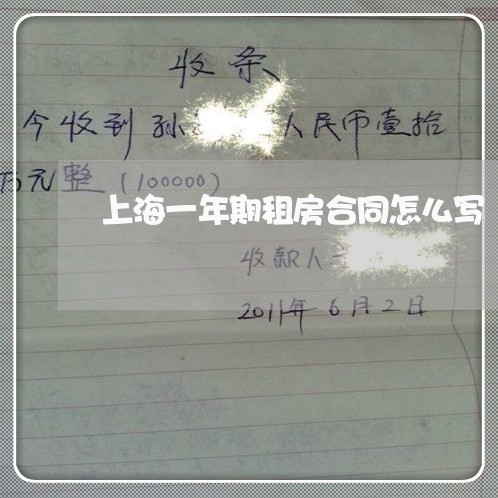 收条
今收到孙 人民币壹拾
万元整(100000)
上海一年期租房合同怎么写
收款人
2011年6月2日